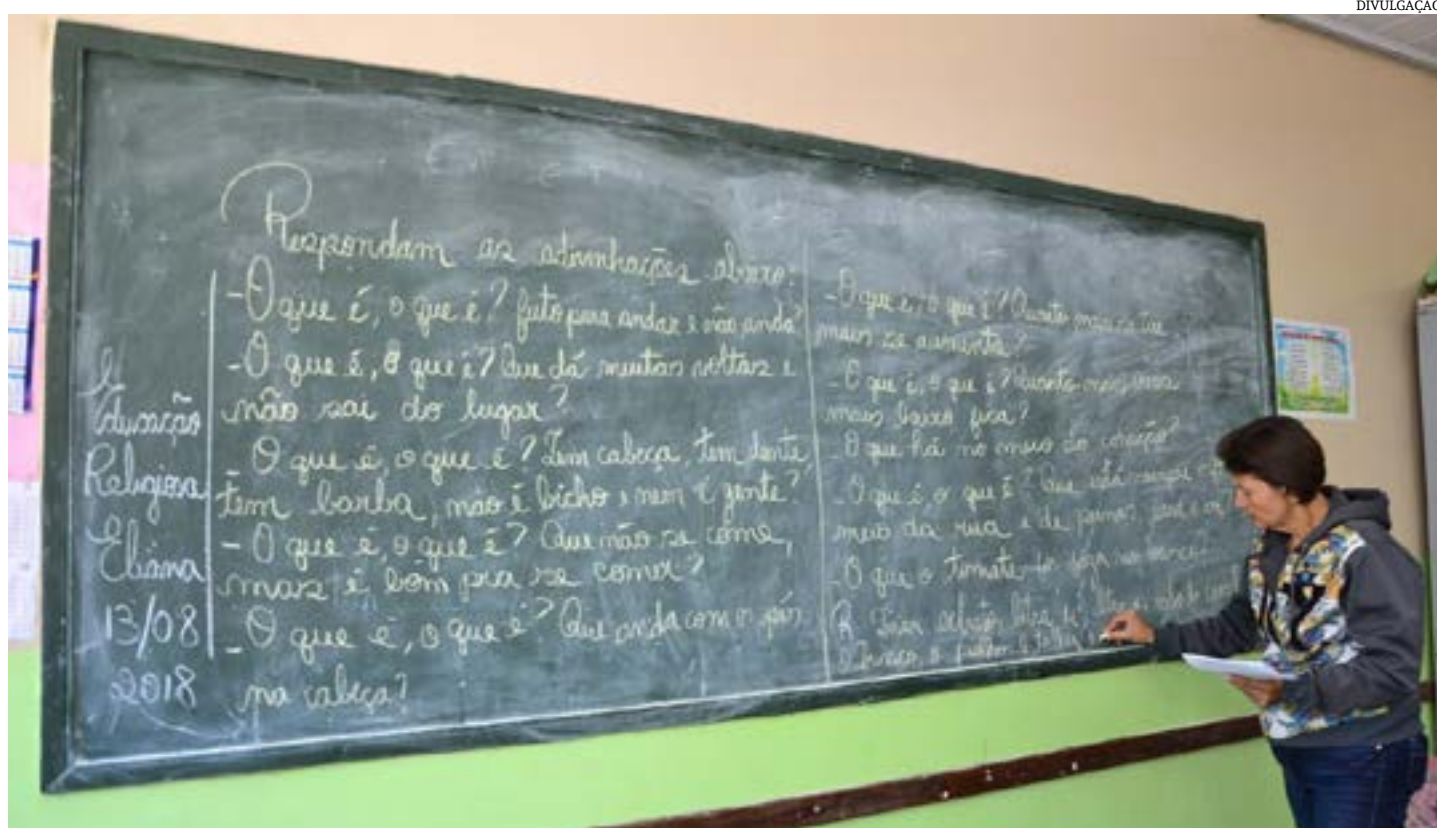 DIVULGAÇÃO
Respondam as adivinhações abaixo:
- O que é, o que é? feito para andar e não anda?
- O que é, o que é? Que dá muitas voltas e
não sai do lugar?
- O que é, o que é? Tem cabeça, tem dente,
tem barba, não é bicho e nem é gente?
- O que é, o que é? Que não se come,
mas é bom pra se comer?
- O que é, o que é? Que anda com os pés
na cabeça?
Educação
Religiosa
Eliana
13/08
2018
- O que é, o que é? Quanto mais se tira
mais se aumenta?
- O que é, o que é? Quanto mais
mais baixo fica?
- O que há no meio do coração?
- O que é, o que é? Que está
meio da rua e de pernas para o ar
- O que o tomate foi
R.